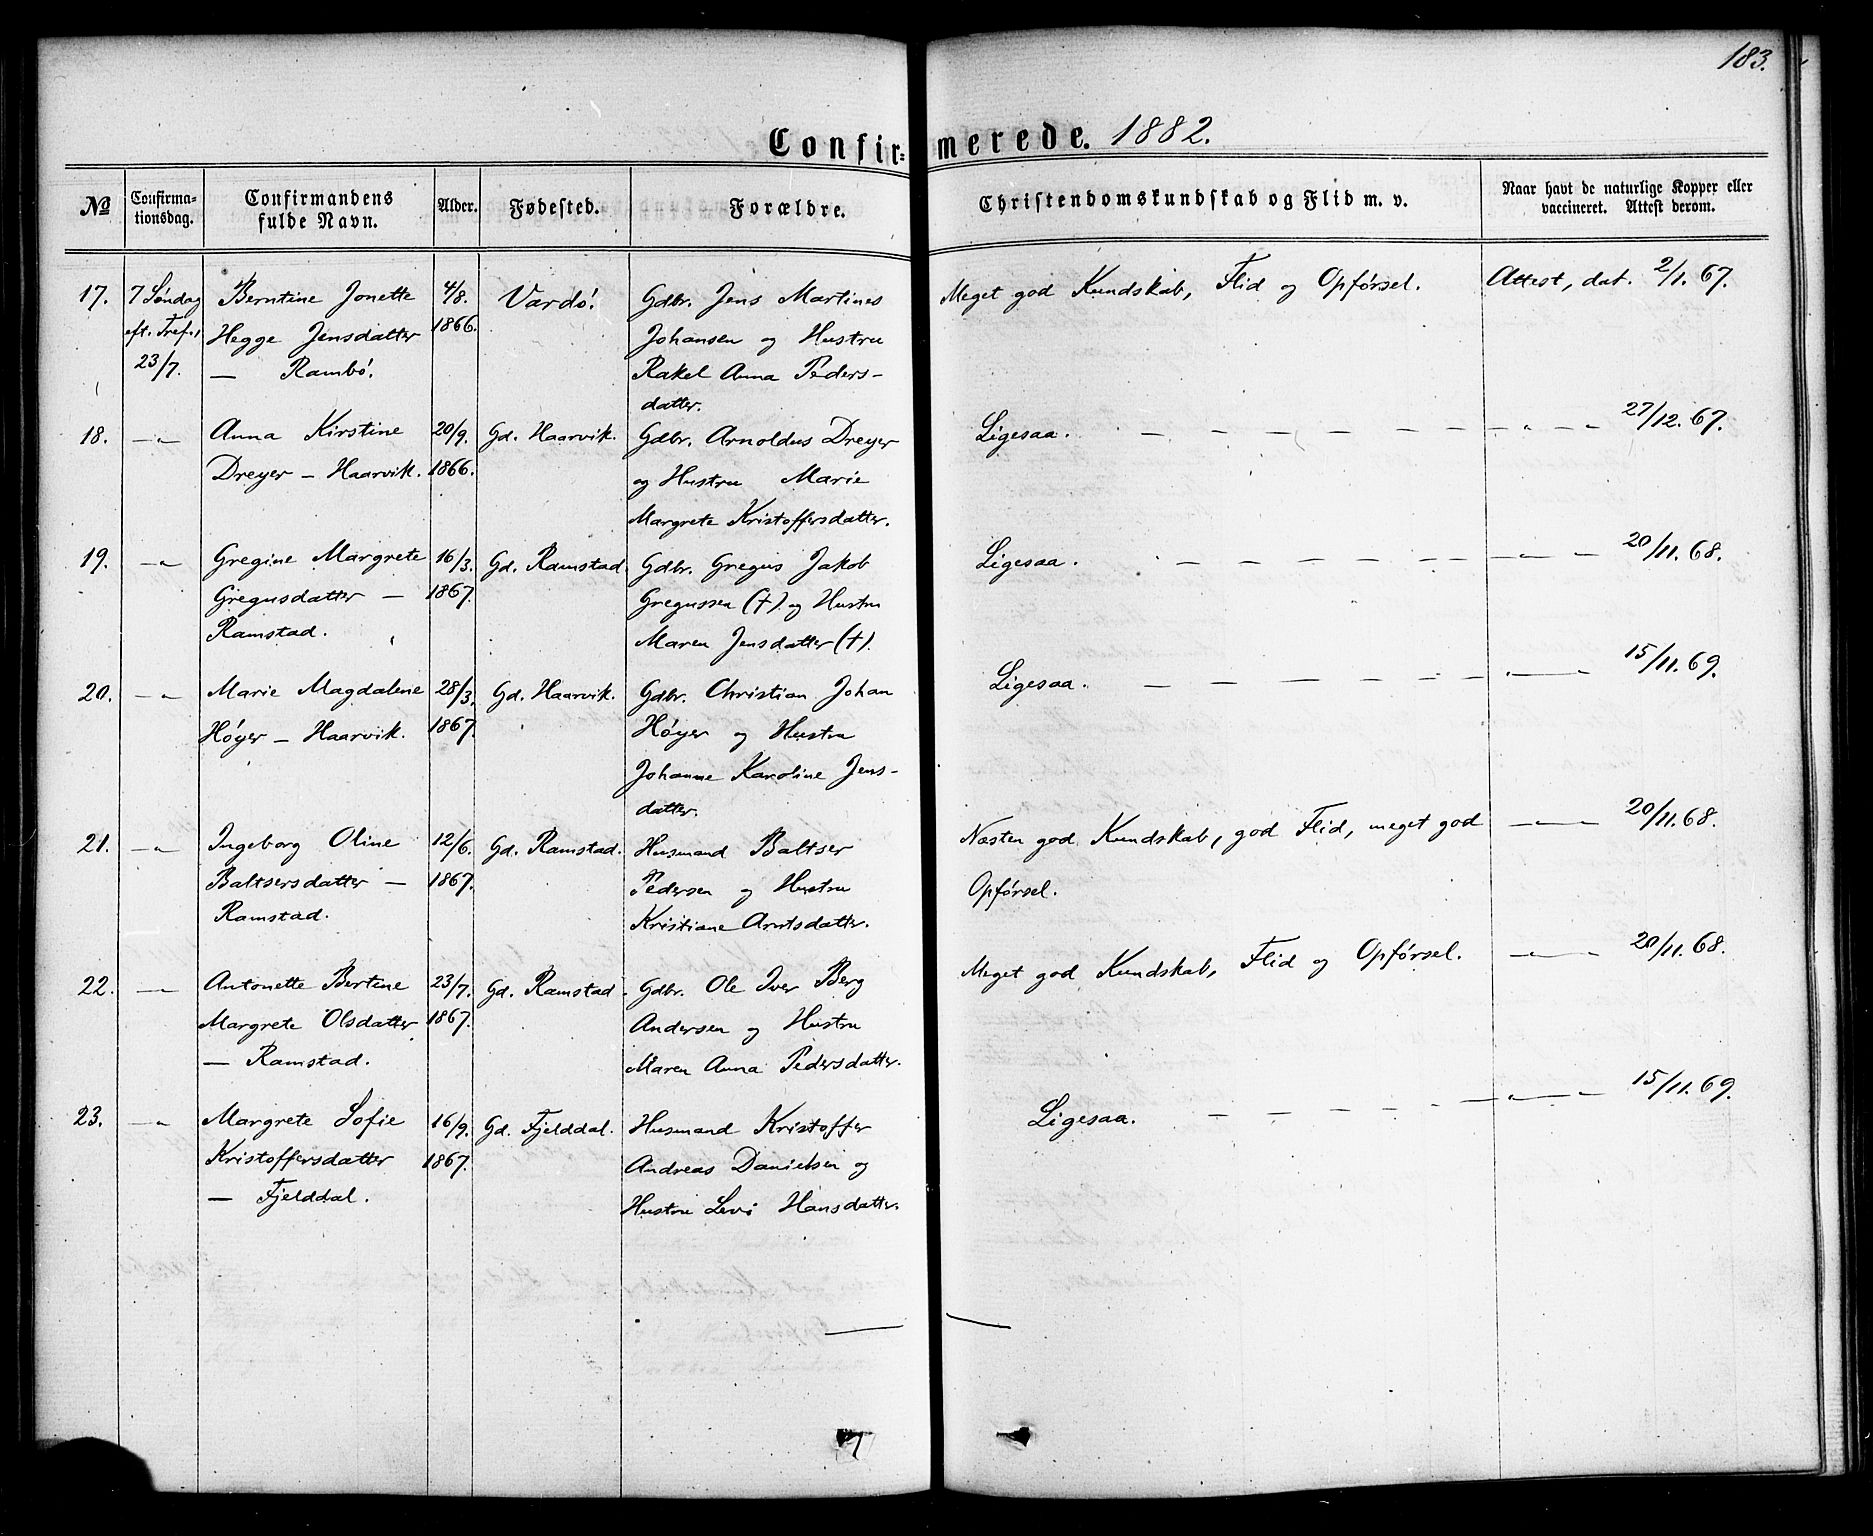 183.
Confirmerede. 1882.
No Confirmationsdag. Confirmandens fulde Navn. Alder. Fødested. Forældre. Christendomskundskab og Flid m. v. Naar havt de naturlige Kopper eller vaccineret. Attest derom.
17. 7 Søndag Berntine Jonette 4/8. Vardö. Gdbr. Jens Martines Meget god Kundskab, Flid og Opførsel. Attest, dat. 2/1. 67.
eft. Tref., Hegge Jensdatter 1866. Johansen og Hustru
23/7. — Rambö. Rakel Anna Peders-
datter.
18. —"— Anna Kirstine 20/9. Gd. Haarvik. Gdbr. Arnoldus Dreyer Ligesaa. — — — — — " — 27/12. 67.
Dreyer — Haarvik. 1866. og Hustru Marie
Margrete Kristoffersdatter.
19. —"— Gregine Margrete 16/3. Gd. Ramstad. Gdbr. Gregus Jakob Ligesaa. — — — — — " — 20/11. 68.
Gregusdatter — 1867. Gregussen (†) og Hustru
Ramstad. Maren Jensdatter (†).
20. —"— Marie Magdalene 28/3. Gd. Haarvik. Gdbr. Christian Johan Ligesaa. — — — — — " — 15/11. 69.
Höyer — Haarvik. 1867. Höyer og Hustru
Johanne Karoline Jens-
datter.
21. —"— Ingeborg Oline 12/6. Gd. Ramstad. Husmand Baltser Næsten god Kundskab, god Flid, meget god —"— 20/11. 68.
Baltsersdatter — 1867. Pedersen og Hustru Opførsel.
Ramstad. Kristiane Arntsdatter.
22. —"— Antonette Bertine 23/7. Gd. Ramstad. Gdbr. Ole Iver Berg Meget god Kundskab, Flid og Opførsel. —"— 20/11. 68.
Margrete Olsdatter 1867. Andersen og Hustru
— Ramstad. Maren Anna Pedersdatter.
23. —"— Margrete Sofie 16/9. Gd. Fjelddal. Husmand Kristoffer Ligesaa. — — — — — " — 15/11. 69.
Kristoffersdatter 1867. Andreas Danielsen og
— Fjelddal. Hustru Levi Hansdatter.